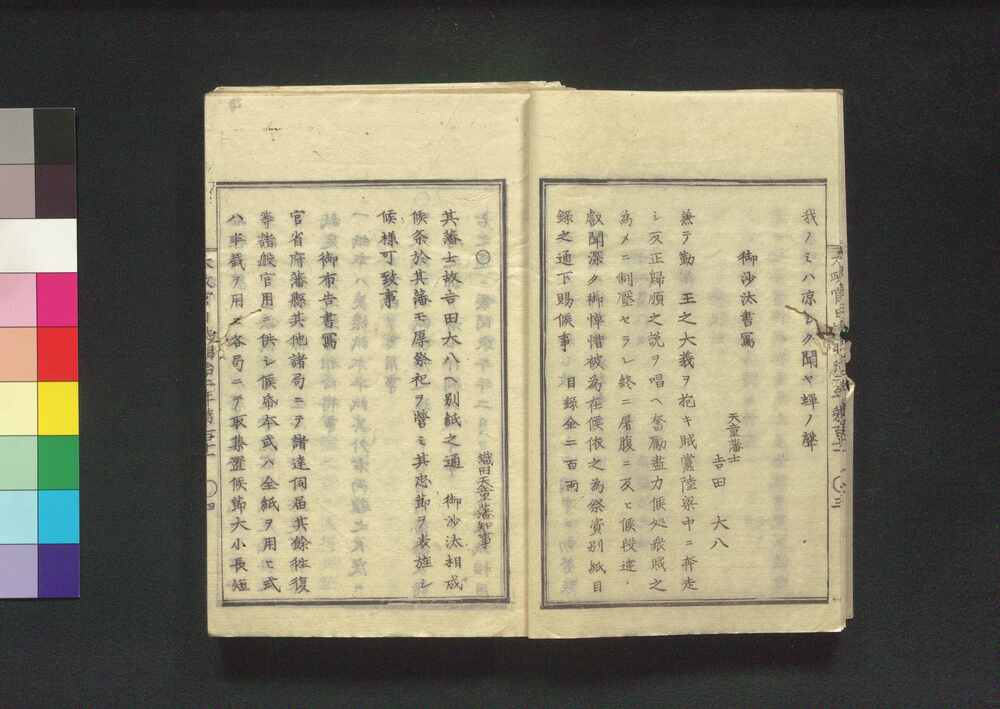 我ノミハ凉シク聞ヤ蟬ノ聲
御沙汰書寫
天童藩士
吉田大八
兼テ勤 王之大義ヲ抱キ賊黨陸梁中ニ奔走
シ反正歸順之説ヲ唱ヘ奮勵盡力候処衆賊之
為メニ制壓セラレ終ニ屠腹ニ及ヒ候段達
叡聞深ク御悼惜被為在候依之為祭資別紙目
録之通下賜候事 目録金二百両
三
織田天童藩知事
其藩士故吉田大八ヘ別紙之通 御沙汰相成
候条於其藩モ厚祭祀ヲ營ミ其忠節ヲ表旌シ
候様可致事
御布告書寫
官省府藩縣其他諸局ニテ諸達伺届其餘往復
等諸般官用ニ供シ候帋本式ハ全紙ヲ用ヒ式
ハ半截ヲ用ヒ各局ニテ取集置候節大小長短
四